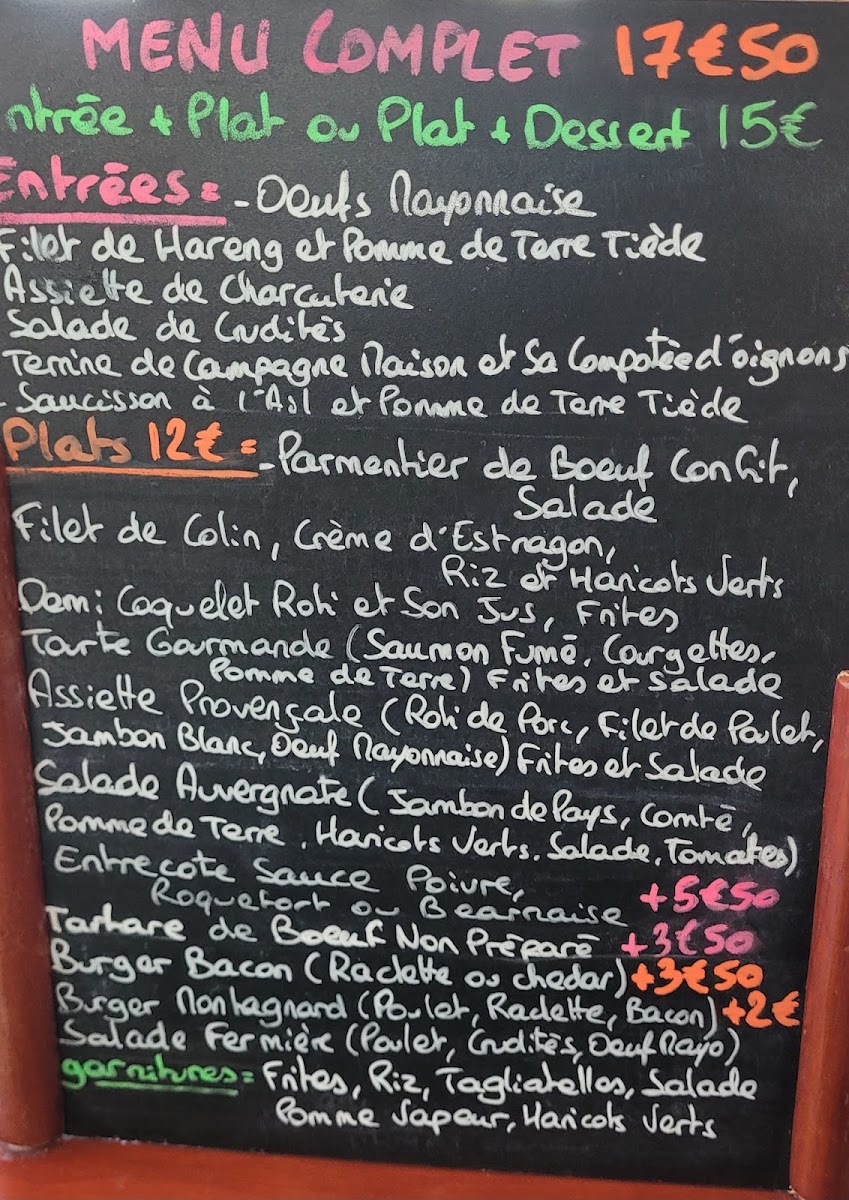 MENU COMPLET 17€50
ntrée + Plat ou Plat + Dessert 15€
Entrées = - Oeufs Mayonnaise
Filet de Hareng et Pomme de Terre Tiède
Assiette de Charcuterie
Salade de Crudités
Terrine de Campagne Maison et Sa Compotée d'oignons
- Saucisson à l'Ail et Pomme de Terre Tiède
Plats 12€ = - Parmentier de Boeuf Confit,
Salade
Filet de Colin, Crème d'Estragon,
Riz et Haricots Verts
Demi Coquelet Roti et Son Jus, Frites
Tourte Gourmande (Saumon Fumé, Courgettes,
Pomme de Terre) Frites et Salade
Assiette Provençale (Roti de Porc, Filet de Poulet,
Jambon Blanc, Oeuf Mayonnaise) Frites et Salade
Salade Auvergnate (Jambon de Pays, Comté,
Pomme de Terre, Haricots Verts, Salade, Tomates)
Entrecote Sauce Poivre,
Roquefort ou Bearnaise +5€50
Tartare de Boeuf Non Préparé +3€50
Burger Bacon (Raclette ou chedar) +3€50
Burger Montagnard (Poulet, Raclette, Bacon) +2€
Salade Fermière (Poulet, Crudités, Oeuf Mayo)
garnitures = Frites, Riz, Tagliatelles, Salade
Pomme Vapeur, Haricots Verts